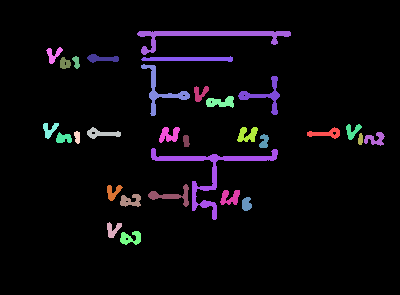 Vb1
Vout
Vin1 M1 M2 Vin2
Vb2 M6
Vb3